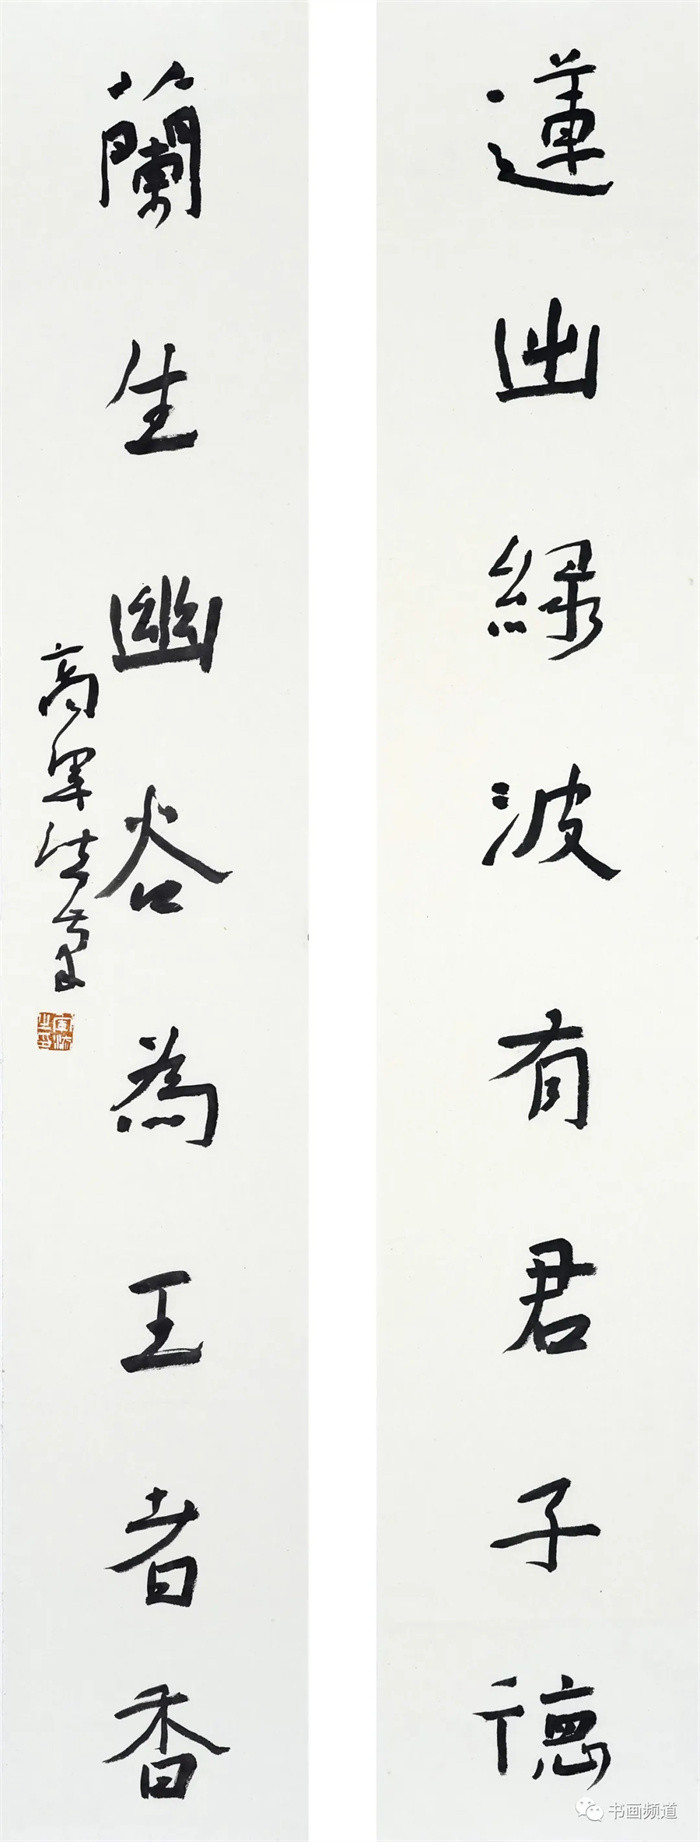 蓮出緑波有君子德
蘭生幽谷為王者香
高軍法書
书画频道